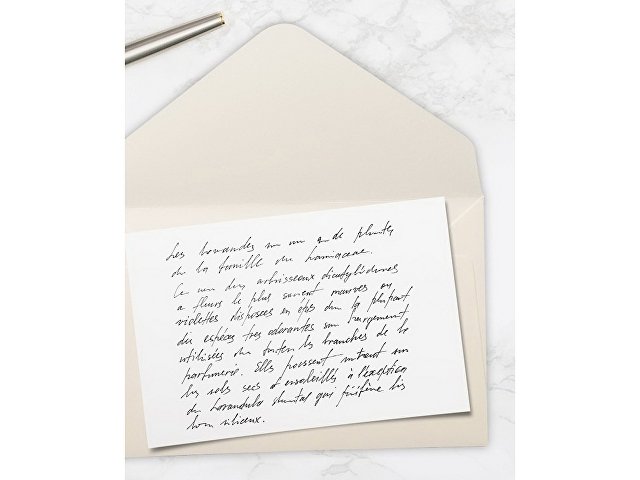 Les lavandes un un g de plantes
de la famille de Lamiaceae.
Ce un des arbrisseaux dicotylédones
a fleurs le plus sauvent mauves ou
violettes disposées en épis don la plupart
des espéces tres odorantes son largement
utilisées dan toutes les branches de la
parfumerie. Ells poussent surtout sur
les sols secs et ensoleillés à l'exception
du Lavandula que préfère les
siliceux.